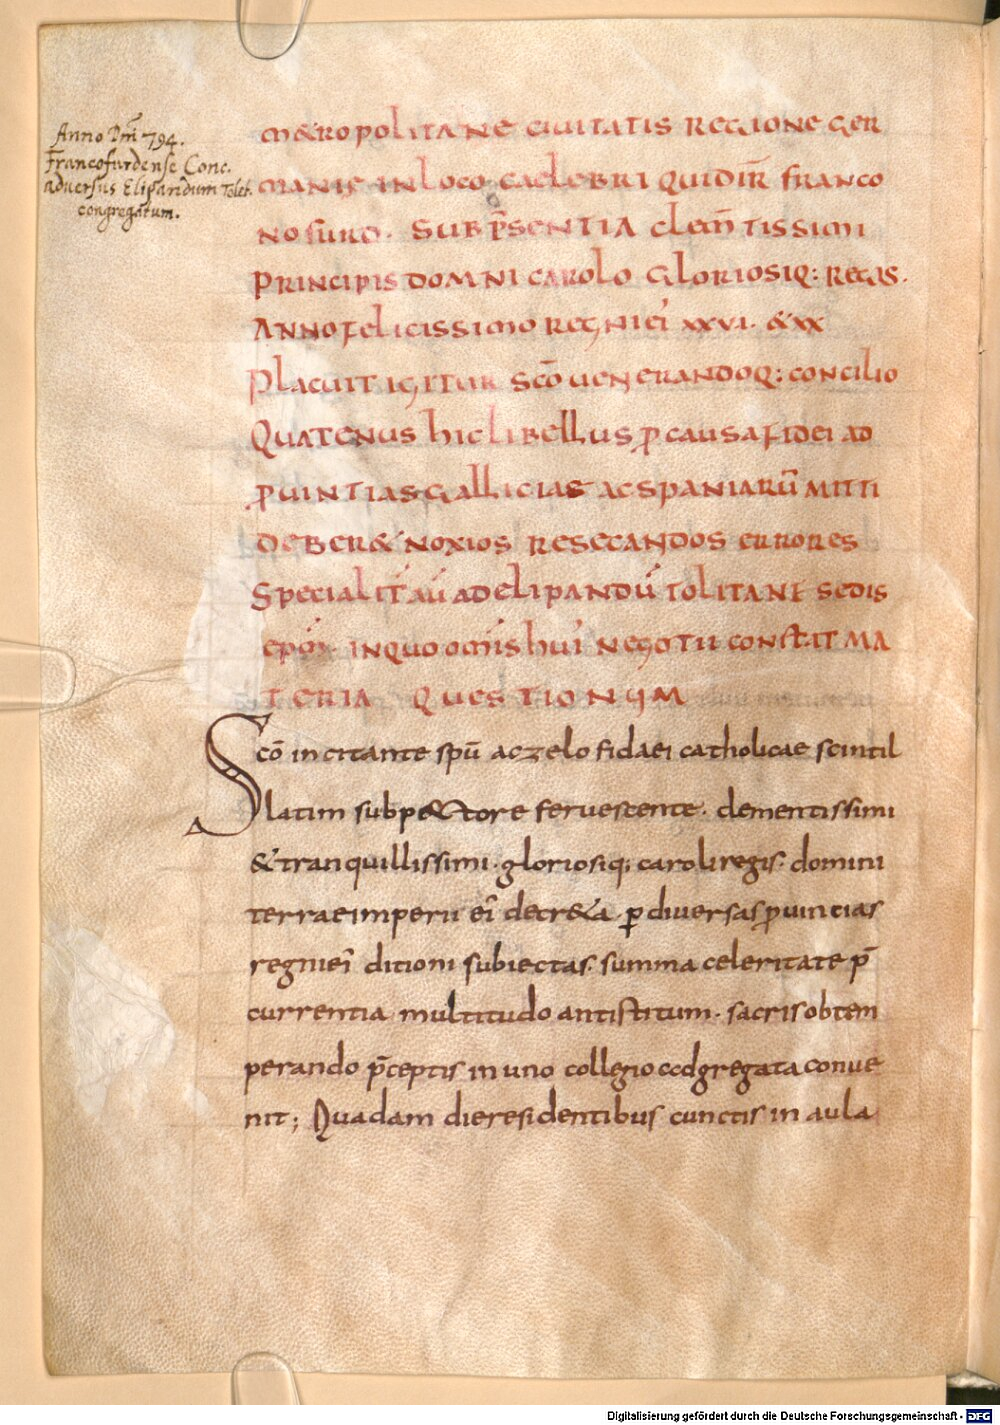 Anno Dm̅ 794.
Francofurdense Conc.
adversus Elipandum Tolet.
congregatum.
M&ROPOLITANE CIUITATIS REGIONE GER
MANIE INLOCO CAELEBRI QUIDIR̅ FRANCO
NOFURD. SUB P̅SENTIA CLEM̅TISSIMI
PRINCIPIS DOMNI CAROLO GLORIOSIQ: REGIS.
ANNO FELICISSIMO REGNI EI' XXVI. & XX
PLACUIT IGITUR SCO̅ UENERANDOQ: CONCILIO
QUATENUS HIC LIBELLUS ꝓ CAUSA FIDEI AD
ꝓUINTIAS GALLICIAS AC SPANIARU̅ MITTI
DEBER& NOXIOS RESECANDOS ERRORES
SPECIALIT' AU' ADELIPANDU' TOLITANE SEDIS
EPM̅ INQUO OMIS HUI' NEGOTII CONSTAT MA
TERIA QUESTIONUM
Sco̅ incitante spu̅ ac zelo fidaei catholicae scintil
latim sub pectore fervescente. clementissimi
& tranquillissimi. gloriosiq; caroli regis. domini
terrae imperii ei' decr&a. ꝑ diversas ꝓuincias
regni ei' ditioni subiectas. summa celeritate p̅
currentia multitudo antistitum. sacris obtem
perando p̅ceptis in uno collegio cðgregata conue
nit; Quadam die residentibus cunctis in aula
Digitalisierung gefördert durch die Deutsche Forschungsgemeinschaft - DFG